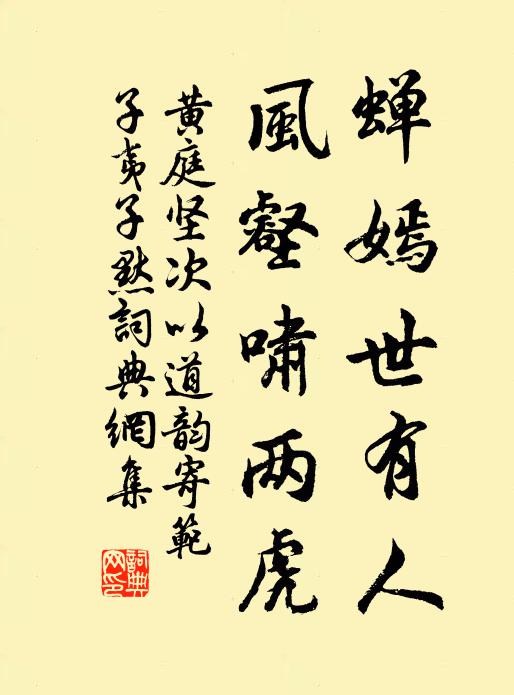 蝉嫣世有人
風壑啸两虎
黄庭坚次以道韵寄範
子夷子默詞典網集
詞典網印